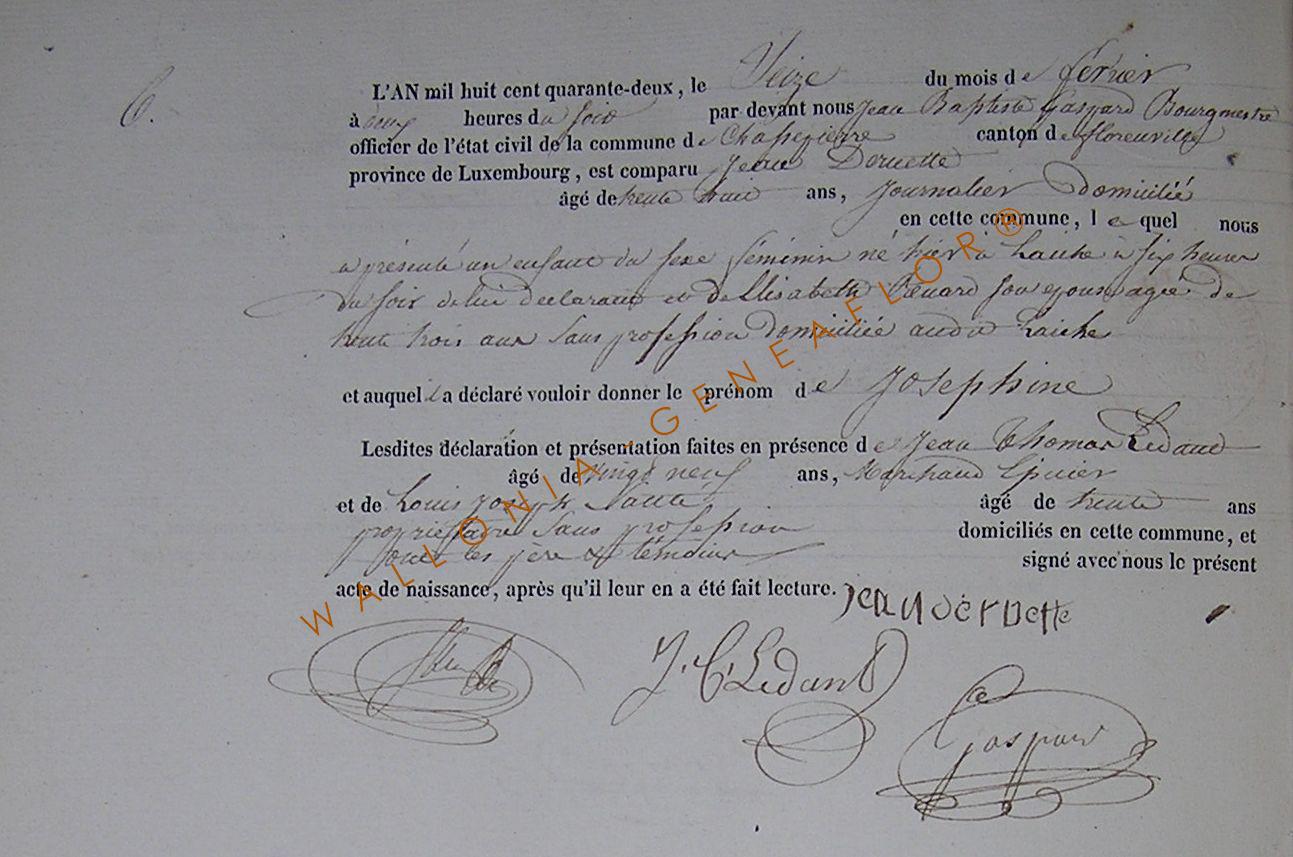 6.
L'AN mil huit cent quarante-deux, le Seize du mois de février
à heures du soir par devant nous Jean Baptiste Gaspard Bourgmestre
officier de l'état civil de la commune de Chassepierre canton de florenville
province de Luxembourg, est comparu Jean
âgé de trente ans, Journalier Domicilié
en cette commune, lequel nous
a présenté un enfant du sexe féminin né hier à Laiche à six heures
du soir de lui déclarant et de Elisabeth son epouse agée de
trente trois ans sans profession domiciliée audit Laiche
et auquel il a déclaré vouloir donner le prénom de Josephine
Lesdites déclaration et présentation faites en présence de Jean Thomas Ledand
âgé de vingt neuf ans, Marchand Epicier
et de Louis Joseph âgé de trente ans
propriétaire sans profession domiciliés en cette commune, et
ont les père & témoins signé avec nous le présent
acte de naissance, après qu'il leur en a été fait lecture.
J. T. Ledand
Gaspard
WALLONIA-GENEAFLOR®